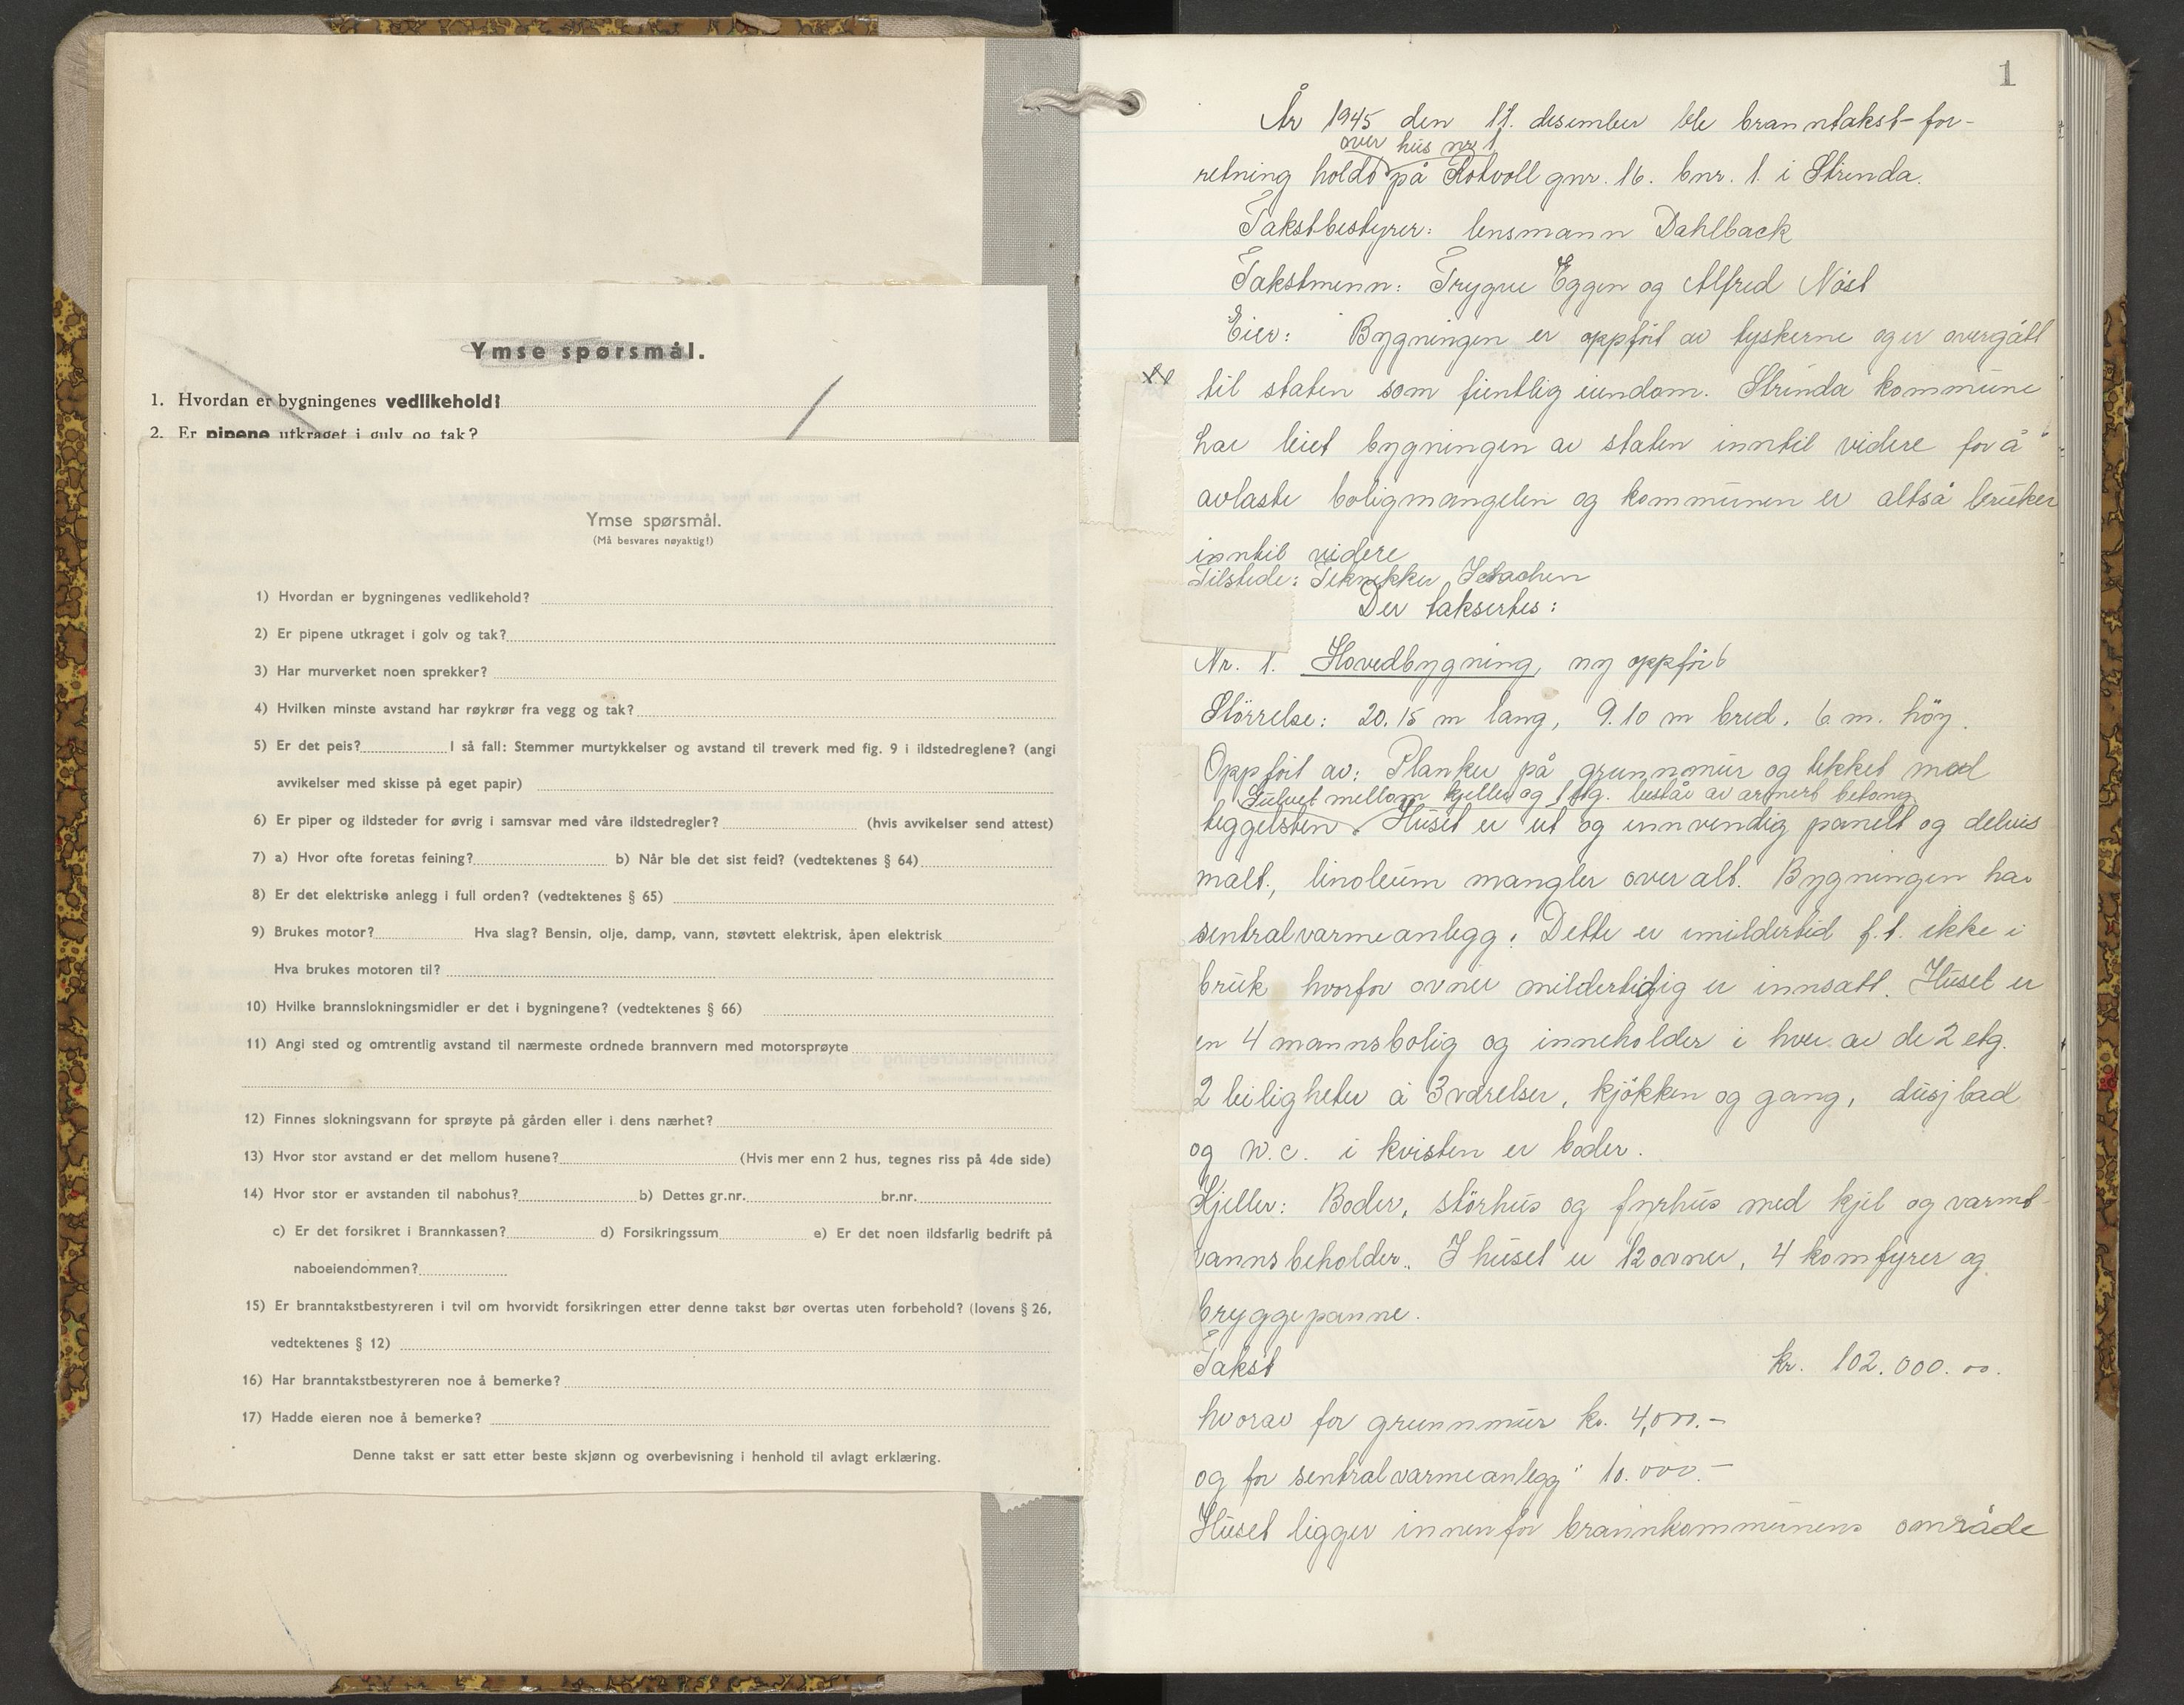 Ymse spørsmål.
1. Hvordan er bygningenes vedlikehold?
2. Er pipene utkraget i gulv og tak?
Ymse spørsmål.
(Må besvares nøyaktig!)
1) Hvordan er bygningenes vedlikehold?
2) Er pipene utkraget i golv og tak?
3) Har murverket noen sprekker?
4) Hvilken minste avstand har røykrør fra vegg og tak?
5) Er det peis? I så fall: Stemmer murtykkelser og avstand til treverk med fig. 9 i ildstedreglene? (angi
avvikelser med skisse på eget papir)
6) Er piper og ildsteder for øvrig i samsvar med våre ildstedregler? (hvis avvikelser send attest)
7) a) Hvor ofte foretas feining? b) Når ble det sist feid? (vedtektenes § 64)
8) Er det elektriske anlegg i full orden? (vedtektenes § 65)
9) Brukes motor? Hva slag? Bensin, olje, damp, vann, støvtett elektrisk, åpen elektrisk
Hva brukes motoren til?
10) Hvilke brannslokningsmidler er det i bygningene? (vedtektenes § 66)
11) Angi sted og omtrentlig avstand til nærmeste ordnede brannvern med motorsprøyte
12) Finnes slokningsvann for sprøyte på gården eller i dens nærhet?
13) Hvor stor avstand er det mellom husene? (Hvis mer enn 2 hus, tegnes riss på 4de side)
14) Hvor stor er avstanden til nabohus? b) Dettes gr.nr. br.nr.
c) Er det forsikret i Brannkassen? d) Forsikringssum e) Er det noen ildsfarlig bedrift på
naboeiendommen?
15) Er branntakstbestyreren i tvil om hvorvidt forsikringen etter denne takst bør overtas uten forbehold? (lovens § 26,
vedtektenes § 12)
16) Har branntakstbestyreren noe å bemerke?
17) Hadde eieren noe å bemerke?
Denne takst er satt etter beste skjønn og overbevisning i henhold til avlagt erklæring.
1
År 1945 den 11. desember ble branntakst-for-
over hus nr 1
retning holdt på Rotvoll gnr. 16. bnr. 1. i Strinda.
Takstbestyrer: lensmann Dahlback
Takstmenn: Trygve Eggen og Alfred Nøst
Eier: Bygningen er oppført av tyskerne og er overgått
til staten som fientlig eiendom. Strinda kommune
har leiet bygningen av staten inntil videre for å
avlaste boligmangelen og kommunen er altså bruker
inntil videre
Tilstede: Tekniker
Der taksertes:
Nr. 1. Hovedbygning, ny oppført
Störrelse: 20.15 m lang, 9.10 m bred, 6 m. höy.
Oppfört av: Planker på grunnmur og tekket med
Gulvet mellom kjeller og 1 etg. består av armert betong
teggelsten. Huset er ut og innvendig panelt og delvis
malt, linoleum mangler overalt. Bygningen har
sentralvarmeanlegg. Dette er imidlertid f.t. ikke i
bruk hvorfor ovner midlertidig er innsatt. Huset er
en 4 mannsbolig og inneholder i hver av de 2 etg.
2 leiligheter á 3 værelser, kjökken og gang, dusjbad
og w.c. i kvisten er boder.
Kjeller: Boder, störhus og fyrhus med kjel og varmt-
vannsbeholder. I huset er 12 ovner, 4 komfyrer og
bryggepanne.
Takst kr. 102.000.00.
hvorav for grunnmur kr. 4,000.-
og for sentralvarmeanlegg " 10.000.-
Huset ligger innenfor brannkommunens område